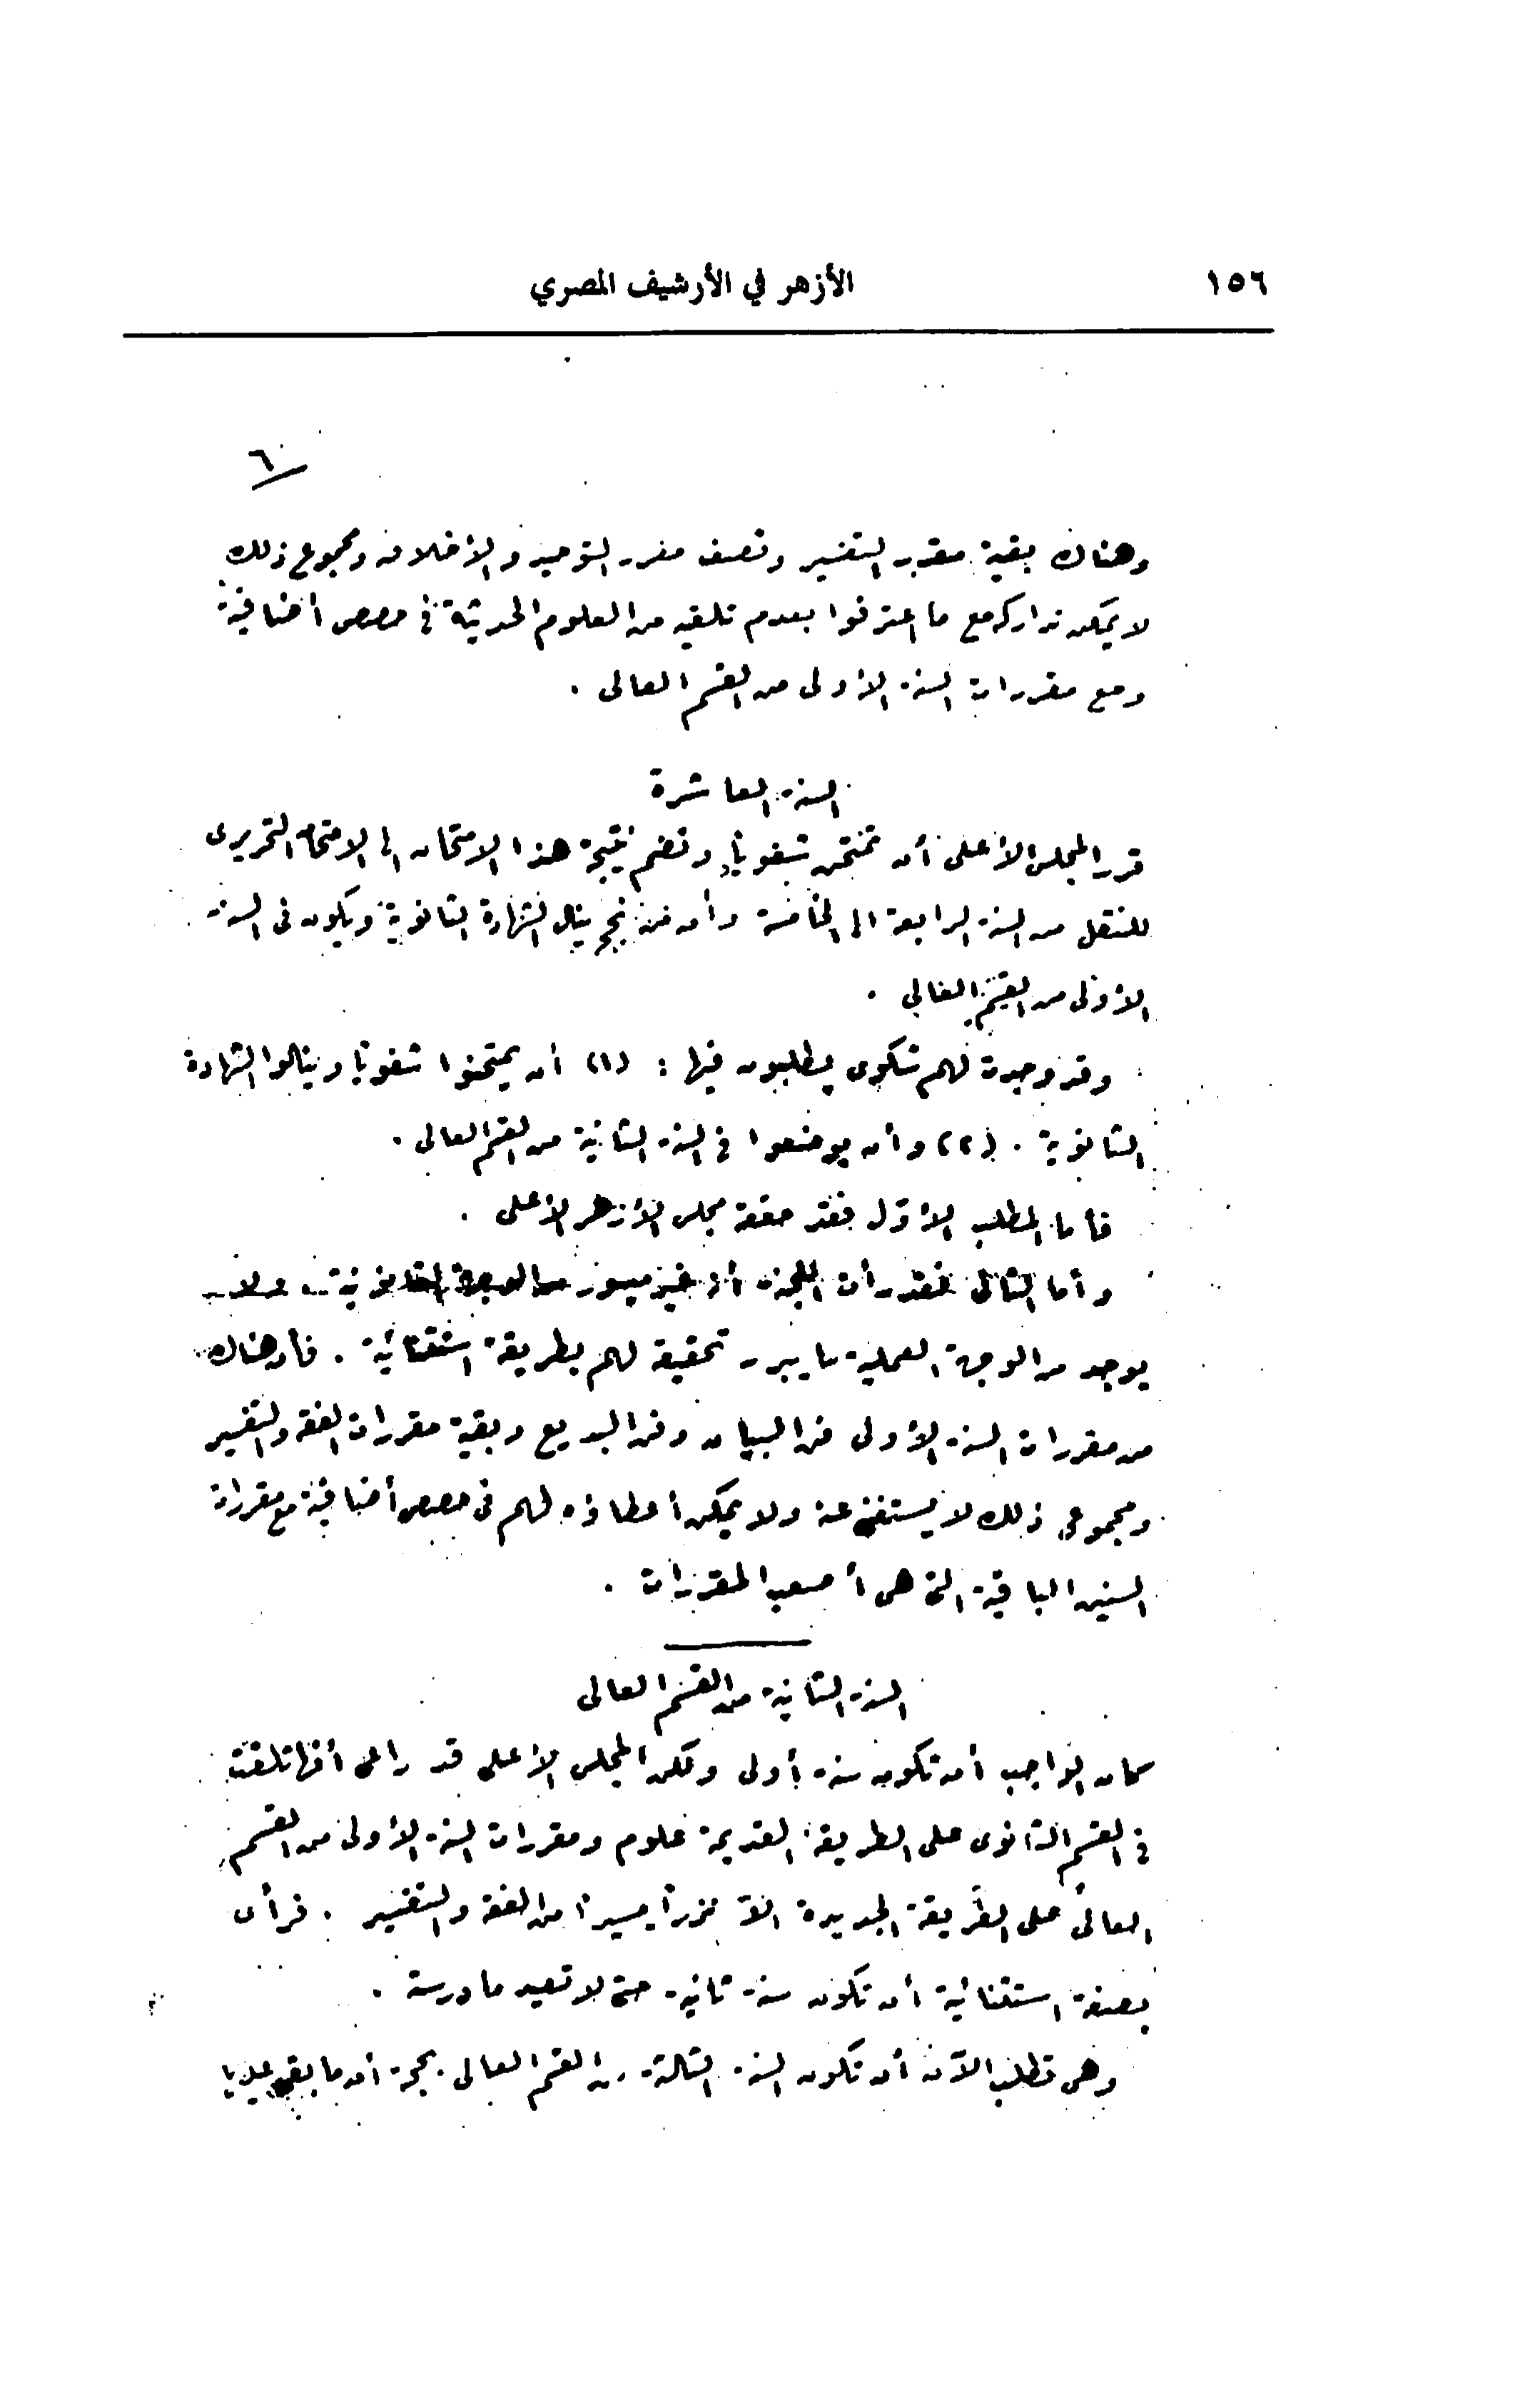 ١٥٦
الأزهر في الأرشيف المصري
٦
وهناك بقية مقرر التفسير ونصف مقرر التوحيد والأخلاق ومجموع ذلك
لا يمكن تداركه مع ما اعترفوا بعدم تلقيه من العلوم الحديثة في حصص أضافية
ومع مقررات السنة الأولى من القسم العالى .
السنة العاشرة
قرر المجلس الأعلى أن تمتحن شفويا وتضم نتيجة هذا الامتحان الى الامتحان التحريرى
للنقل من السنة الرابعة الى الخامسة وأن من نجح ينال الشهادة الثانوية ويكون فى السنة
الأولى من القسم العالى .
وقد وجدت لهم شكوى يطلبون فيها : (١) أن يمتحنوا شفويا وينالوا الشهادة
الثانوية . (٢) وأن يوضعوا فى السنة الثانية من القسم العالى .
فأما المطلب الأول فقد حققه مجلس الأزهر الأعلى .
وأما الثانى فقد رأت اللجنة أنه غير ميسور من الوجهة القانونية . ولا
يوجد من الوجهة العملية ما يبرر تحقيقه لهم بطريقة استثنائية . فأن هناك
من مقررات السنة الأولى فن البيان وفن البديع وبقية مقررات الفقه والتفسير
ومجموع ذلك لا يستغنى عنه ولا يمكن أعطاؤه لهم فى حصص أضافية مع مقررات
السنين الباقية التى هى أصعب المقررات .
السنة الثانية من القسم العالى
كان الواجب أن تكون سنة أولى ولكن المجلس الأعلى قد راعى أنها تلقت
فى القسم الثانوى على الطريقة القديمة علوم ومقررات السنة الأولى من القسم
العالى على الطريقة الجديدة الا نزرا يسيرا من الفقه والتفسير . فرأى
بصفة استثنائية أن تكون سنة ثانية حتى لا تعيد ما درسته .
وهى تطلب الآن أن تكون السنة الثالثة من القسم العالى بحجة أن ما بقى عليها